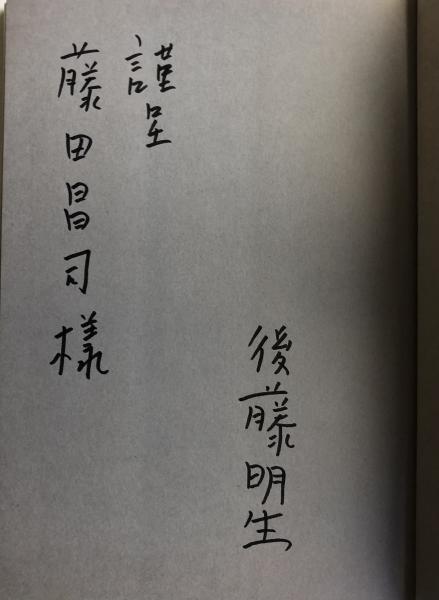 後藤明生
謹呈
藤田昌司様